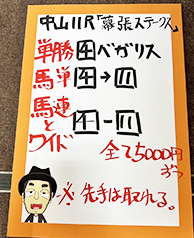 中山11R「幕張ステークス」
単勝 四 ベガリス
馬単 四→四
馬連とワイド 四-四
全て5000円ずつ
※先手は取れる。